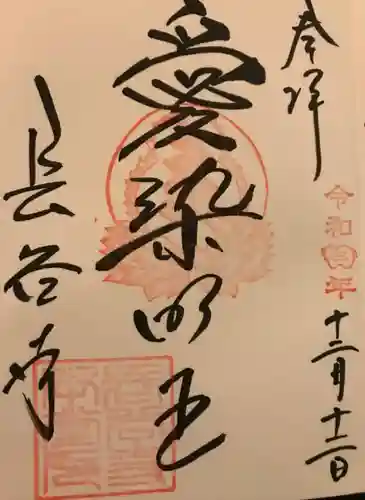 奉拝
令和
年
十二月十二日
愛染明王
長谷寺